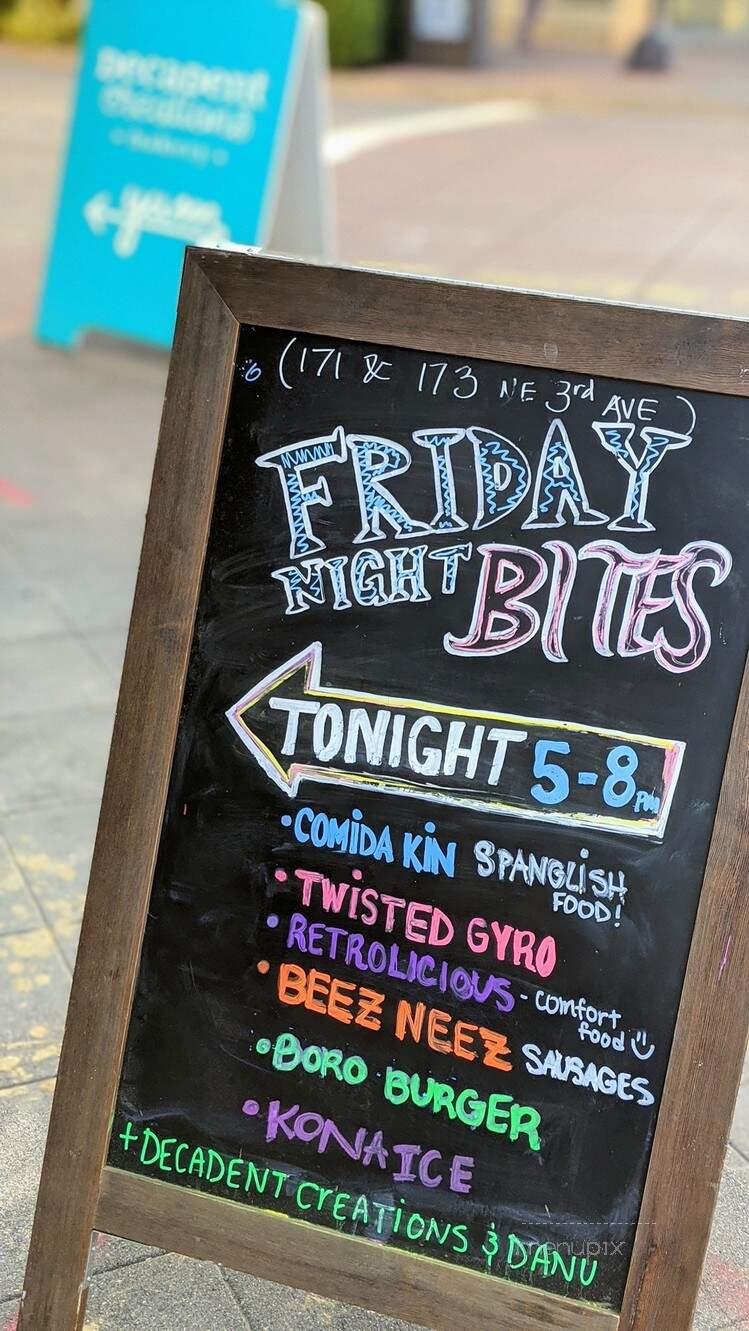 Decadent
Creations
Bakery
yum
(171 & 173 NE 3rd AVE)
FRIDAY
NIGHT BITES
TONIGHT 5-8PM
•COMIDA KIN SPANGLISH
FOOD!
•TWISTED GYRO
•RETROLICIOUS - comfort
food
•BEEZ NEEZ SAUSAGES
•BORO BURGER
•KONA ICE
+DECADENT CREATIONS & DANU
menupix